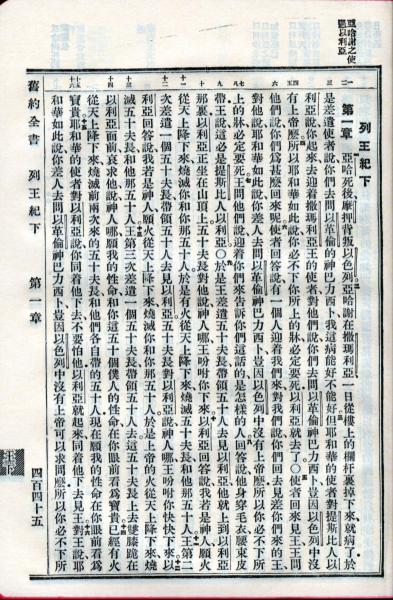 亞哈謝之使
遇以利亞
列王紀下
第一章 亞哈死後摩押背叛以色列亞哈謝在撒瑪利亞一日從樓上的欄杆裏掉下來就病了於
是差遣使者說你們去問以革倫的神巴力西卜我這病能好不能好但耶和華的使者對提斯比人以
利亞說你起來去迎着撒瑪利亞王的使者對他們說你們去問以革倫神巴力西卜豈因以色列中沒
有上帝麼所以耶和華如此說你必不下你所上的牀必定要死以利亞就去了○使者回來見王王問
他們說你們爲甚麼回來呢使者回答說有一個人迎着我們來對我們說你們回去見差你們來的王
對他說耶和華如此說你差人去問以革倫神巴力西卜豈因以色列中沒有上帝麼所以你必不下所
上的牀必定要死王問他們說迎着你們來告訴你們這話的是怎樣的人回答說他身穿毛衣腰束皮
帶王說這必是提斯比人以利亞○於是王差遣五十夫長帶領五十人去見以利亞他就上到以利亞
那裏以利亞正坐在山頂上五十夫長對他說神人哪王吩咐你下來以利亞回答說我若是神人願火
從天上降下來燒滅你和你那五十人於是有火從天上降下來燒滅五十夫長和他那五十人王第二
次差遣一個五十夫長帶領五十人去見以利亞五十夫長對以利亞說神人哪王吩咐你快快下來以
利亞回答說我若是神人願火從天上降下來燒滅你和你那五十人於是上帝的火從天上降下來燒
滅五十夫長和他那五十人王第三次差遣一個五十夫長帶領五十人去這五十夫長上去雙膝跪在
以利亞面前哀求他說神人哪願我的性命和你這五十個僕人的性命在你眼前看爲寶貴已經有火
從天上降下來燒滅前兩次來的五十夫長和他們各自帶的五十人現在願我的性命在你眼前看爲
寶貴耶和華的使者對以利亞說你同着他下去不要怕他以利亞就起來同着他下去見王對王說耶
和華如此說你差人去問以革倫神巴力西卜豈因以色列中沒有上帝可以求問麼所以你必不下所
舊約全書 列王紀下 第一章 四百四十五